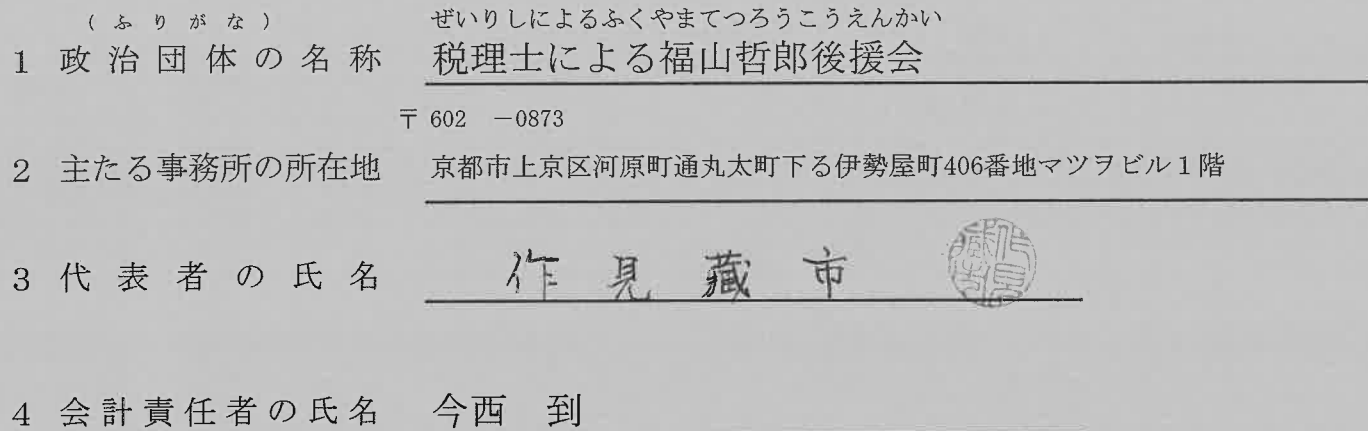 (ふりがな) ぜいりしによるふくやまてつろうこうえんかい
1 政治団体の名称 税理士による福山哲郎後援会
〒 602 -0873
2 主たる事務所の所在地 京都市上京区河原町通丸太町下る伊勢屋町406番地マツヲビル1階
3 代表者の氏名 作見藏市
4 会計責任者の氏名 今西 到